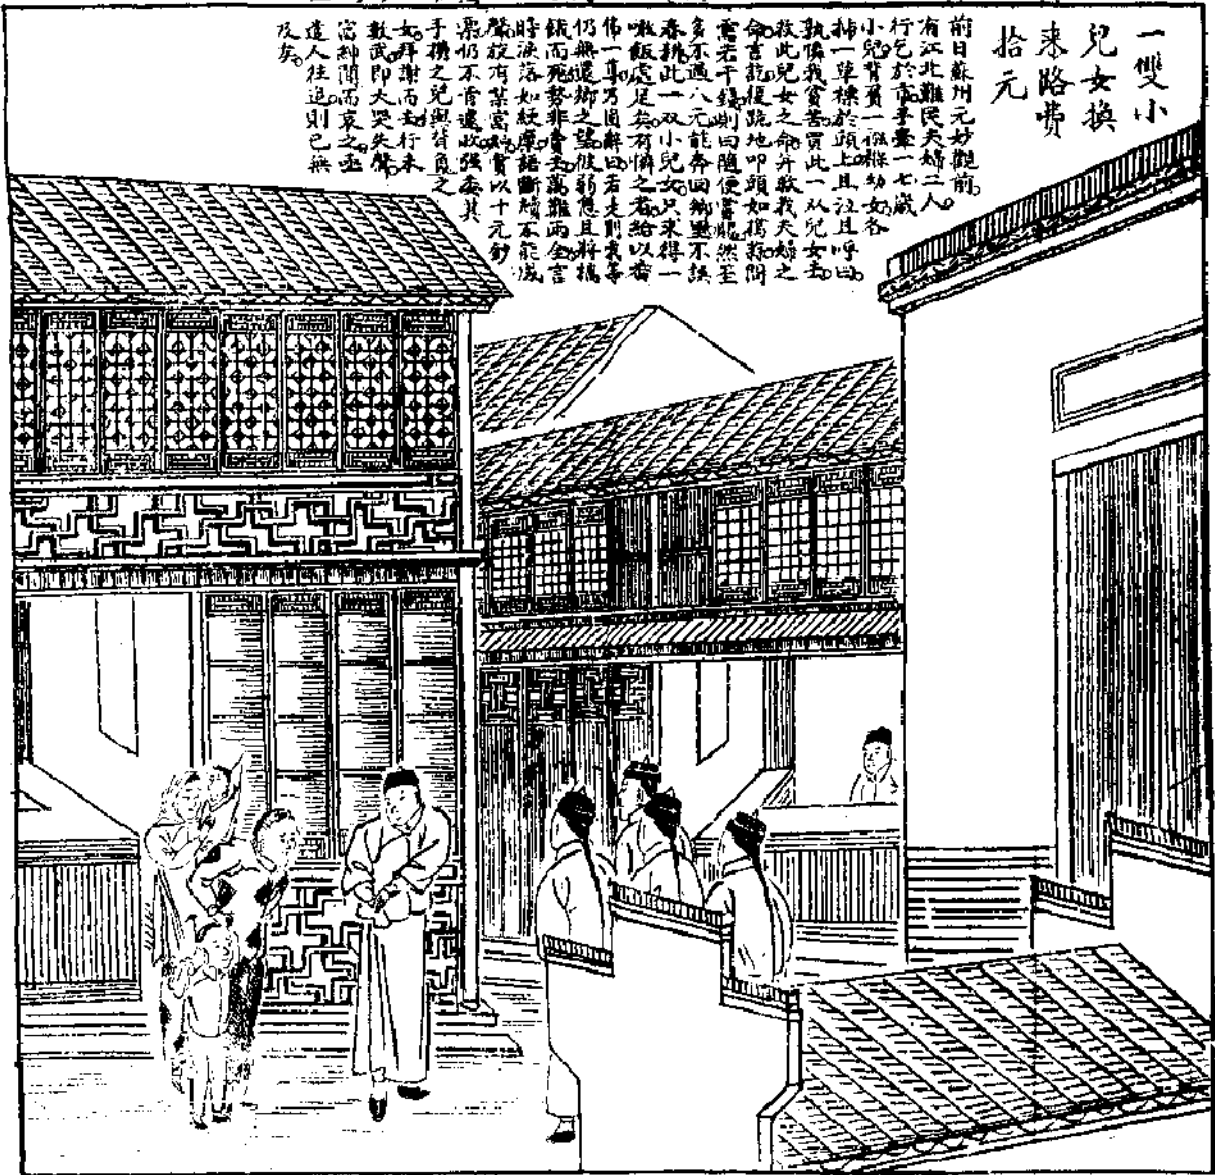 一雙小
兒女換
来路費
拾元
前日蘇州元妙觀前
有江北難民夫婦二人
行乞於市手牽一七歲
小兒背負一襁褓幼女各
插一草標於頭上且泣且呼曰
孰憐我貧苦買此一双兒女去
救此兒女之命并救我夫婦之
命言訖復跪地叩頭如搗蒜問
需若干錢則曰隨便賞賜然至
多不過八元能奔回鄉里不誤
春耕此一双小兒女只求得一
噉飯處足矣有憐之者給以番
佛一尊乃固辭曰若是則我等
仍無還鄉之望彼弱息且將槁
餓而死勢非賣去萬難兩全言
時淚落如綆縻語斷續不能成
聲旋有某富紳賞以十元鈔
票仍不肯遽收强委其
手携之兒與背負之
女拜謝而去行未
數武即大哭失聲
富紳聞而哀之亟
遣人往追則已無
及矣